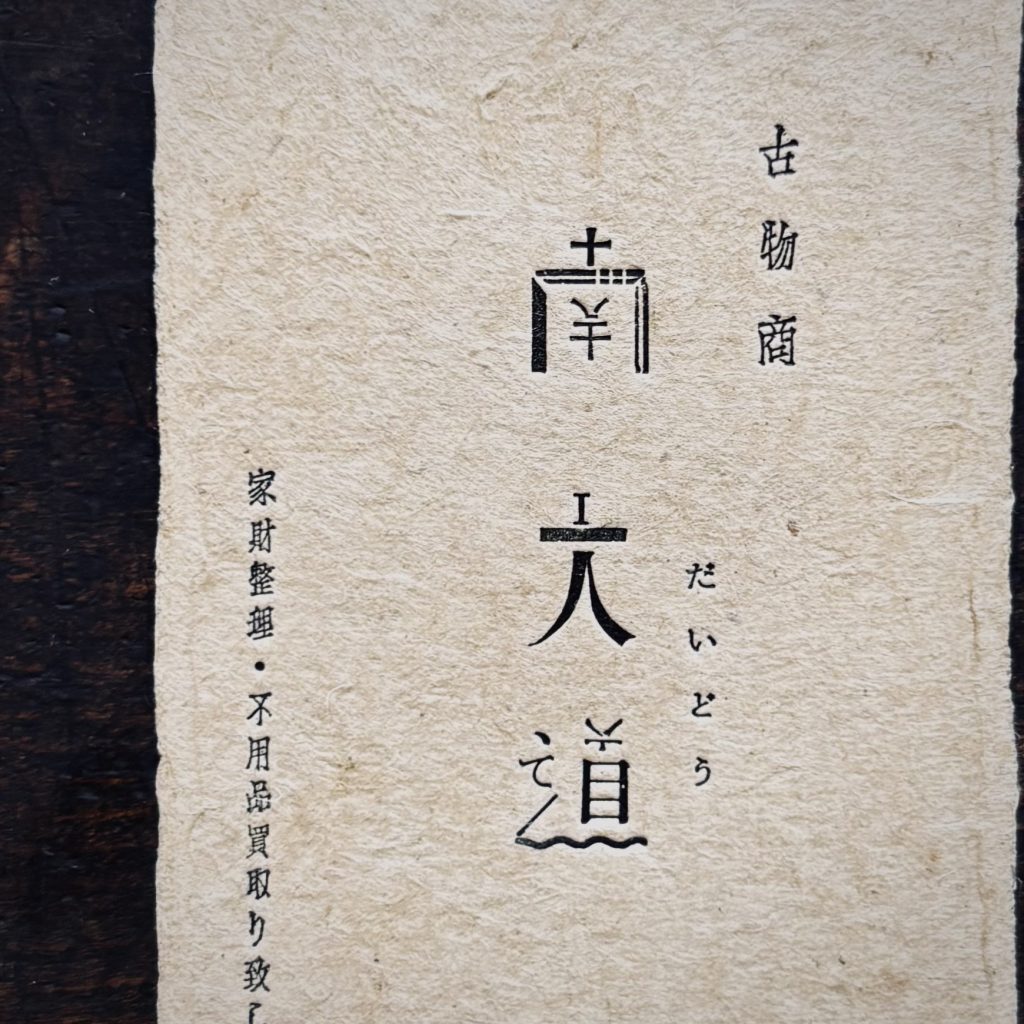 古物商
だいどう
南大道
家財整理・不用品買取り致し